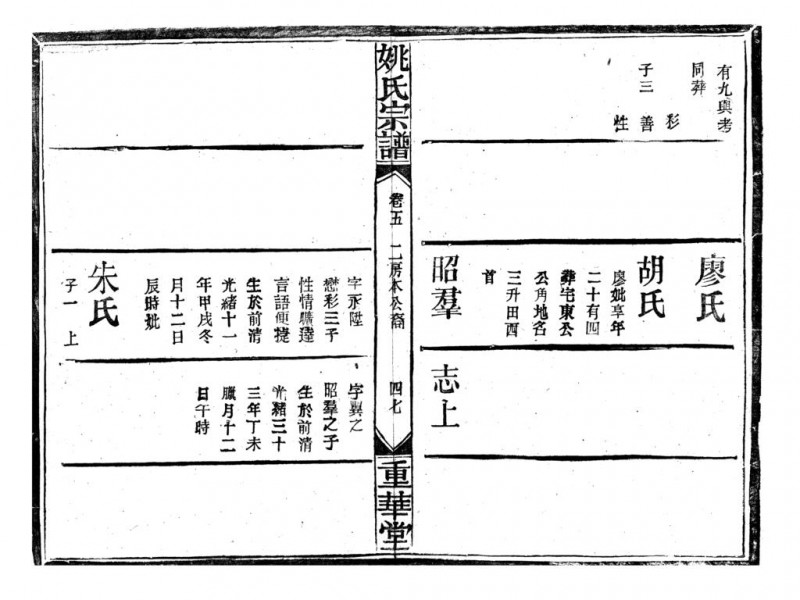 有九與考
同葬
子三
彩
善
性
廖氏
胡氏
廖妣享年
二十有四
葬宅東公
公角地名
三升田酉
首
昭羣
志上
姚氏宗譜
卷五
二房本公裔
四七
重華堂
字永陞
懋彩三子
性情曠達
言語便捷
生於前清
光緒十一
年甲戌冬
月十二日
辰時妣
朱氏
子一
上
字興之
昭羣之子
生於前清
光緒三十
三年丁未
臘月十二
日午時